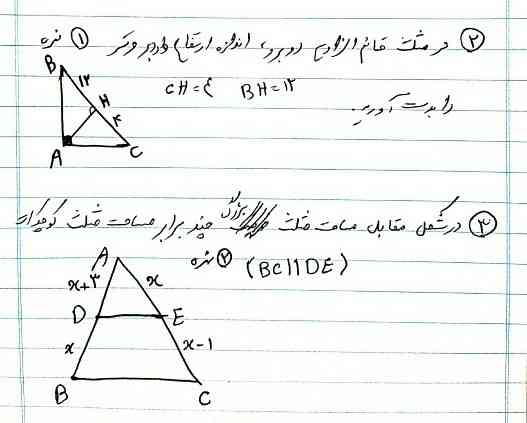 ۲ در مثلث قائم الزاویه روبرو، اندازه ارتفاع وارد بر وتر ۱ نمره
را بدست آورید. BH=۱۲ CH=۴
B
۱۲
H
۴
A
C
۳ در شکل مقابل مساحت مثلث بزرگ چند برابر مساحت مثلث کوچک است
۲ نمره (BC||DE)
A
x+۳
x
D
E
x
x-1
B
C